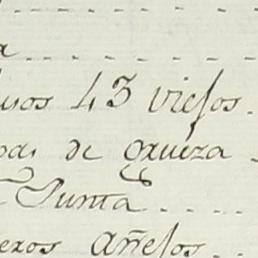 a
usos 43 viejos
pas de grueza
Junta
exos Añejos